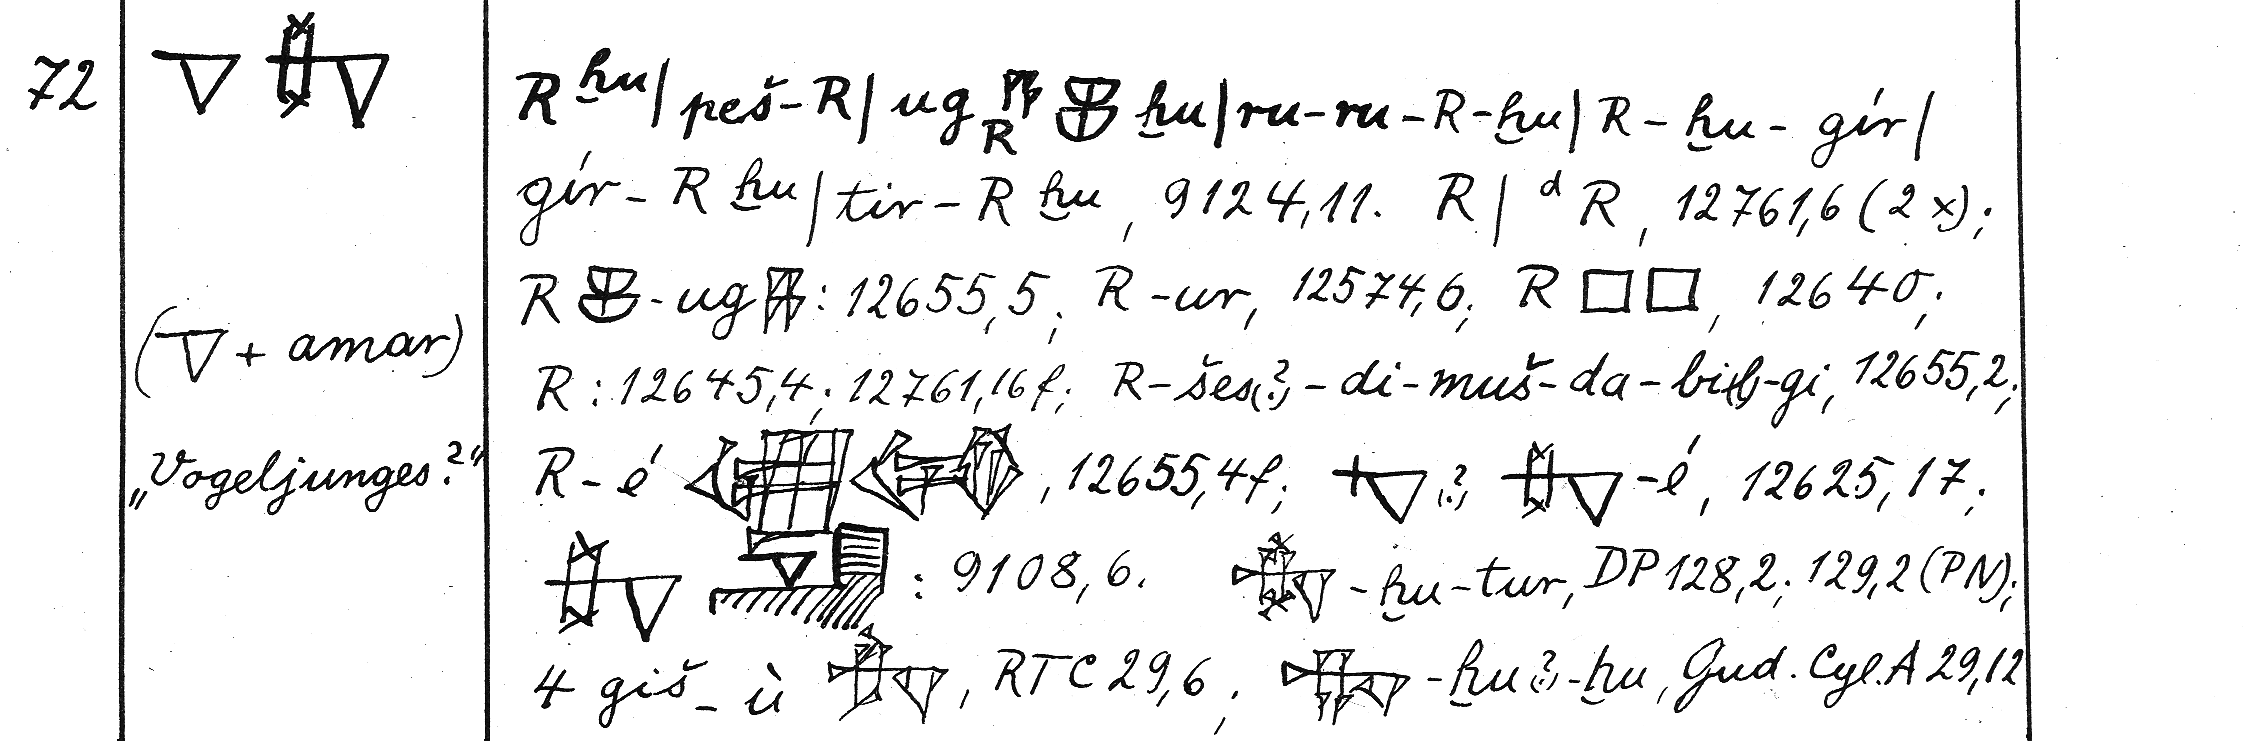 72
( + amar)
„Vogeljunges?“
R ḫu | peš-R | ug R ḫu | ru-ru-R-ḫu | R-ḫu-gír |
gír-R ḫu | tir-R ḫu, 9124,11. R | d R, 12761,6 (2×);
R -ug : 12655,5; R-ur, 12574,6; R □□, 12640;
R : 12645,4; 12761,16f; R-šeš(?)-di-muš-da- -gi, 12655,2;
R-é , 12655,4f; (?) -é, 12625,17;
: 9108,6. -ḫu-tur, DP 128,2; 129,2 (PN);
4 giš-ù , RTC 29,6; -ḫu(?)-ḫu, Gud. Cyl. A 29,12